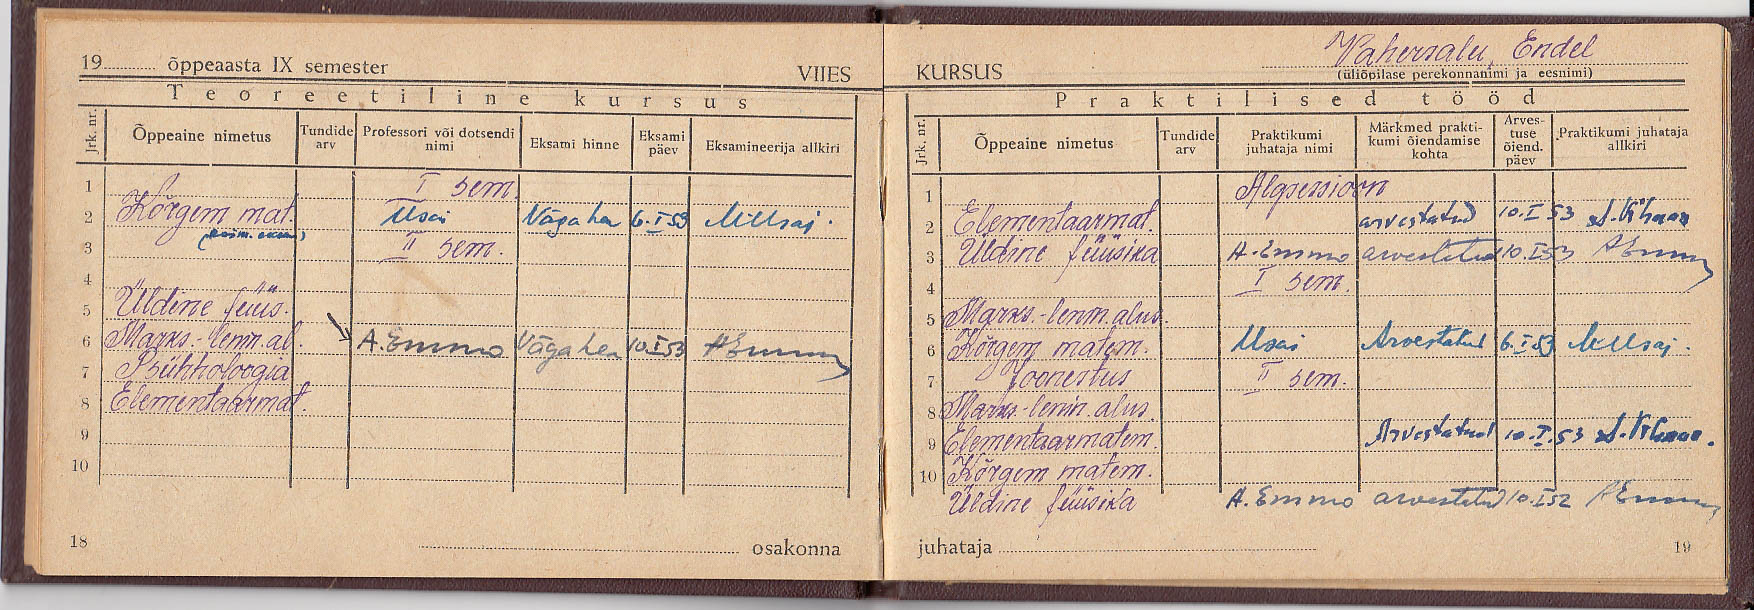 19 õppeaasta IX semester VIIES
Teoreetiline kursus
Jrk. nr. Õppeaine nimetus Tundide arv Professori või dotsendi nimi Eksami hinne Eksami päev Eksamineerija allkiri
1 I sem.
2 Kõrgem mat. Usai Väga hea 6.I 53
3 II sem.
4
5 Üldine füüs.
6 Marks.-lenin. al. A. Emmo Väga hea 10.I 53 A Emmo
7 Psühholoogia
8 Elementaarmat.
9
10
18 osakonna
Vahersalu, Endel
KURSUS (üliõpilase perekonnanimi ja eesnimi)
Praktilised tööd
Jrk. nr. Õppeaine nimetus Tundide arv Praktikumi juhataja nimi Märkmed praktikumi õiendamise kohta Arvestuse õiend. päev Praktikumi juhataja allkiri
1
2 Elementaarmat. arvestatud 10.I 53
3 Üldine füüsika A. Emmo arvestatud 10.I 53 A Emmo
4 I sem.
5 Marks.-lenin. alus.
6 Kõrgem matem. Usai Arvestatud 6.I 53
7 Joonestus II sem.
8 Marks.-lenin. alus.
9 Elementaarmatem. Arvestatud 10.I.53
10 Kõrgem matem.
Üldine füüsika A. Emmo arvestatud 10.I 52 A Emmo
juhataja 19